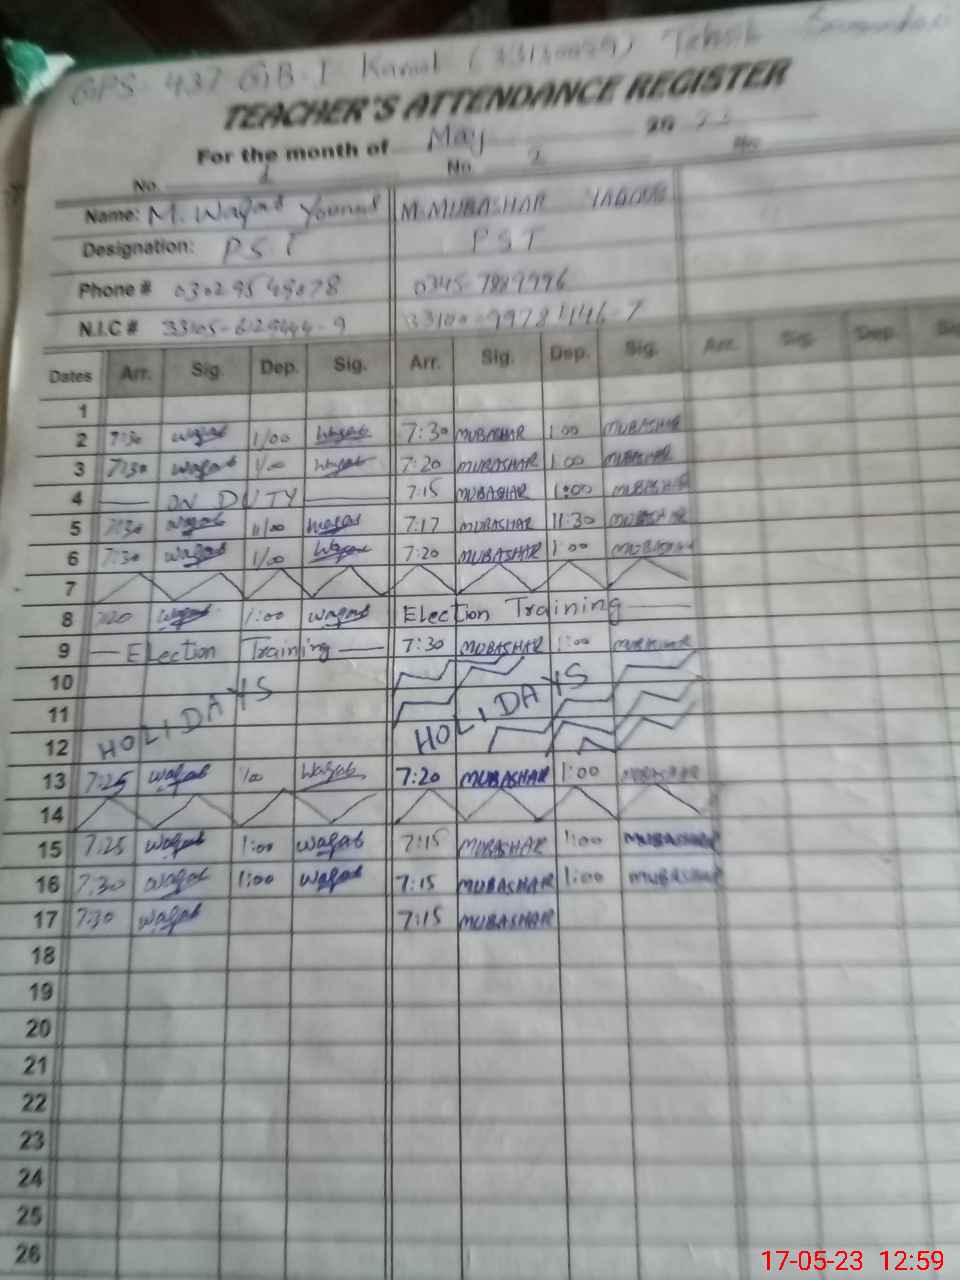 GPS 437 GB-I Kanul (33130079) Tehsil
TEACHER'S ATTENDANCE REGISTER
For the month of May 20
No. 1 No. 2 No.
Name: M. Waqab Younas M. MUBASHAR YAQOUB
Designation: PST PST
Phone # 03029549078 0345-7889996
N.I.C # 33105-6129444-9 33100-9978446-7
Dates Arr. Sig. Dep. Sig. Arr. Sig. Dep. Sig. Arr. Sig. Dep. Sig.
1
2 7:30 waqab 1/00 waqab 7:30 MUBASHAR 1:00 MUBASHAR
3 7:30 waqab 1/00 waqab 7:20 MUBASHAR 1:00 MUBASHAR
4 ON DUTY 7:15 MUBASHAR 1:00 MUBASHAR
5 7:30 waqab 11/00 waqab 7:17 MUBASHAR 11:30 MUBASHAR
6 7:30 waqab 1/00 waqab 7:20 MUBASHAR 1:00 MUBASHAR
7
8 7:20 waqab 1:00 waqab Election Training
9 Election Training 7:30 MUBASHAR 1:00 MUBASHAR
10
11 HOLIDAYS HOLIDAYS
12
13 7:25 waqab 1/00 waqab 7:20 MUBASHAR 1:00 MUBASHAR
14
15 7:25 waqab 1:00 waqab 7:15 MUBASHAR 1:00 MUBASHAR
16 7:30 waqab 1:00 waqab 7:15 MUBASHAR 1:00 MUBASHAR
17 7:30 waqab 7:15 MUBASHAR
18
19
20
21
22
23
24
25
26
17-05-23 12:59